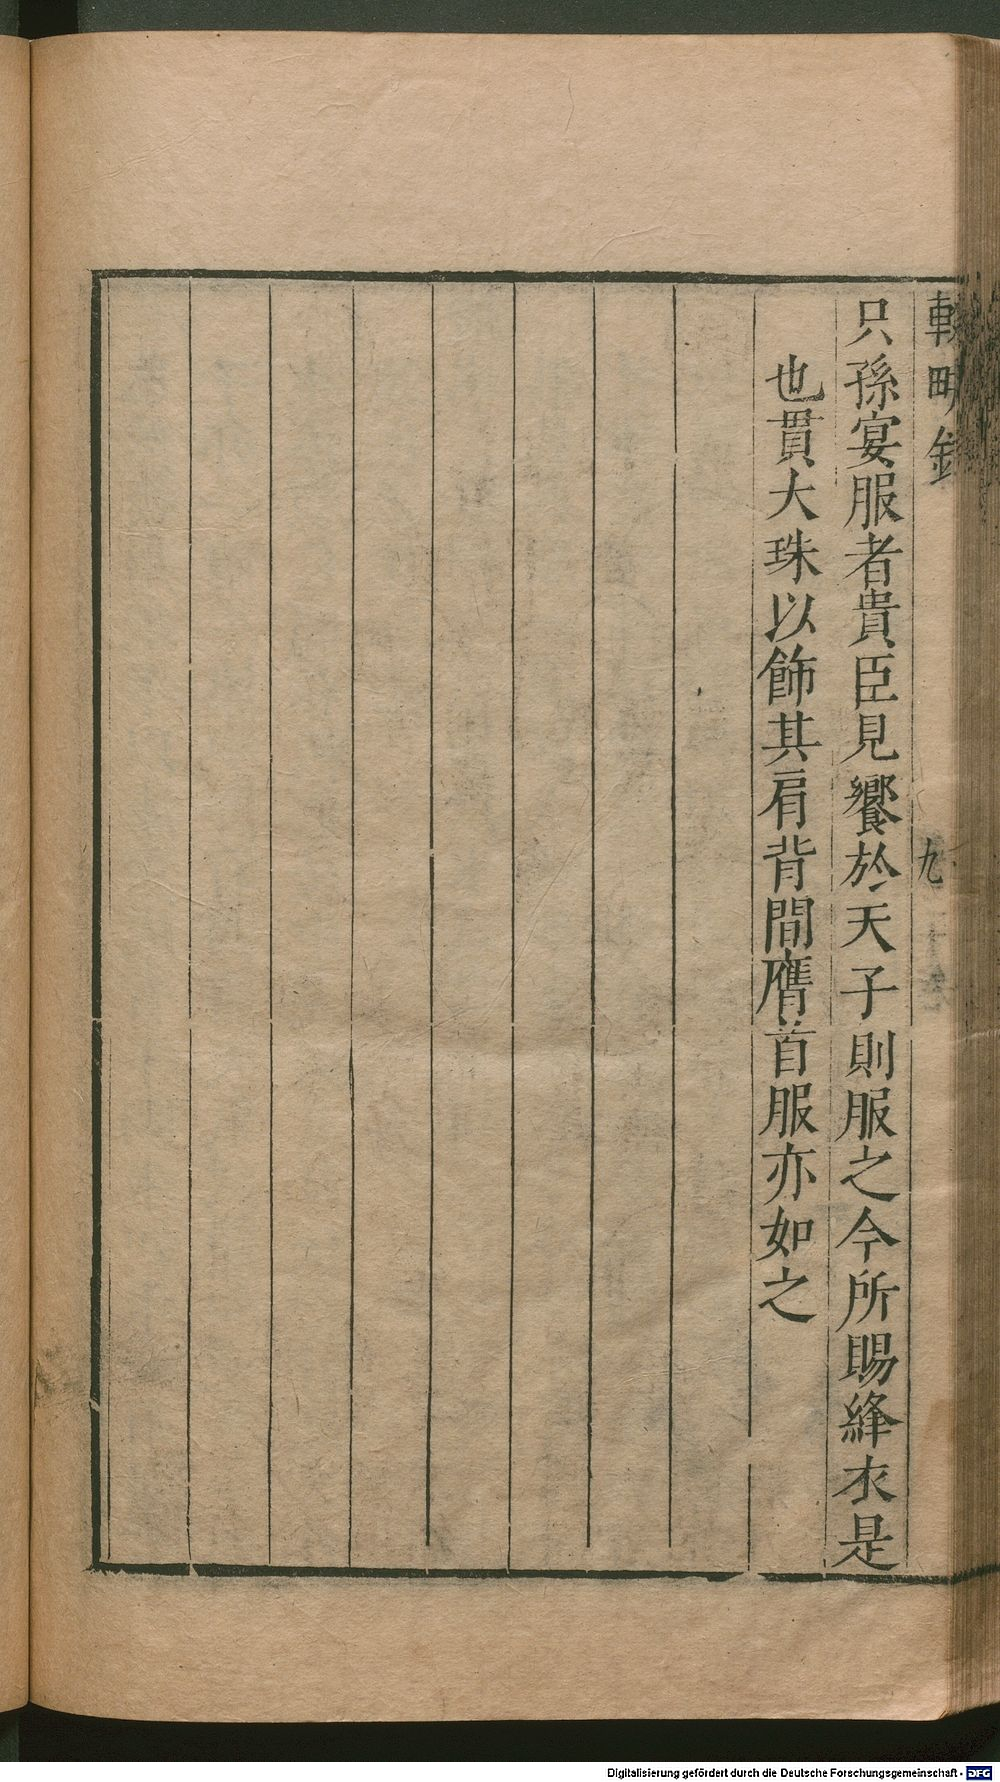 輟畊錄
九
只孫宴服者貴臣見饗於天子則服之今所賜絳衣是
也貫大珠以飾其肩背間膺首服亦如之
Digitalisierung gefördert durch die Deutsche Forschungsgemeinschaft - DFG